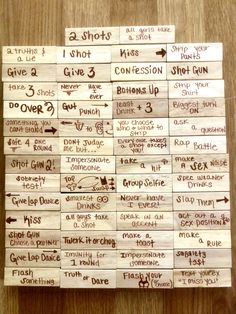 2 Shots
all girls take a shot
2 truths & a lie
1 Shot
Kiss
Strip your Pants
Give 2
Give 3
Confession
Shot Gun
take 3 Shots
Never Have I ever
Bottoms Up
Strip your Shirt
Do Over
Gut Punch
least Drunk + 3
Biggest turn on
something you can't stand
you choose who & what to strip
ask a question
Don't judge me but...
Everyone takes a shot except you
Rap Battle
Shot Gun 2!
Impersonate someone
take a hit
make a sex noise
sobriety test!
Group Selfie
Give Lap Dance
smartest Drinks
Never have I ever!
Slap Them
Kiss
all guys take a shot
Speak in an accent
act out a sex position
Shot Gun choose a partner
Twerk it or chug
make a toast
make a Rule
Give Lap Dance
immunity for 1 round
Impersonate someone
sobriety test
Flash something
Truth or Dare
Flash your
text your ex I miss you!